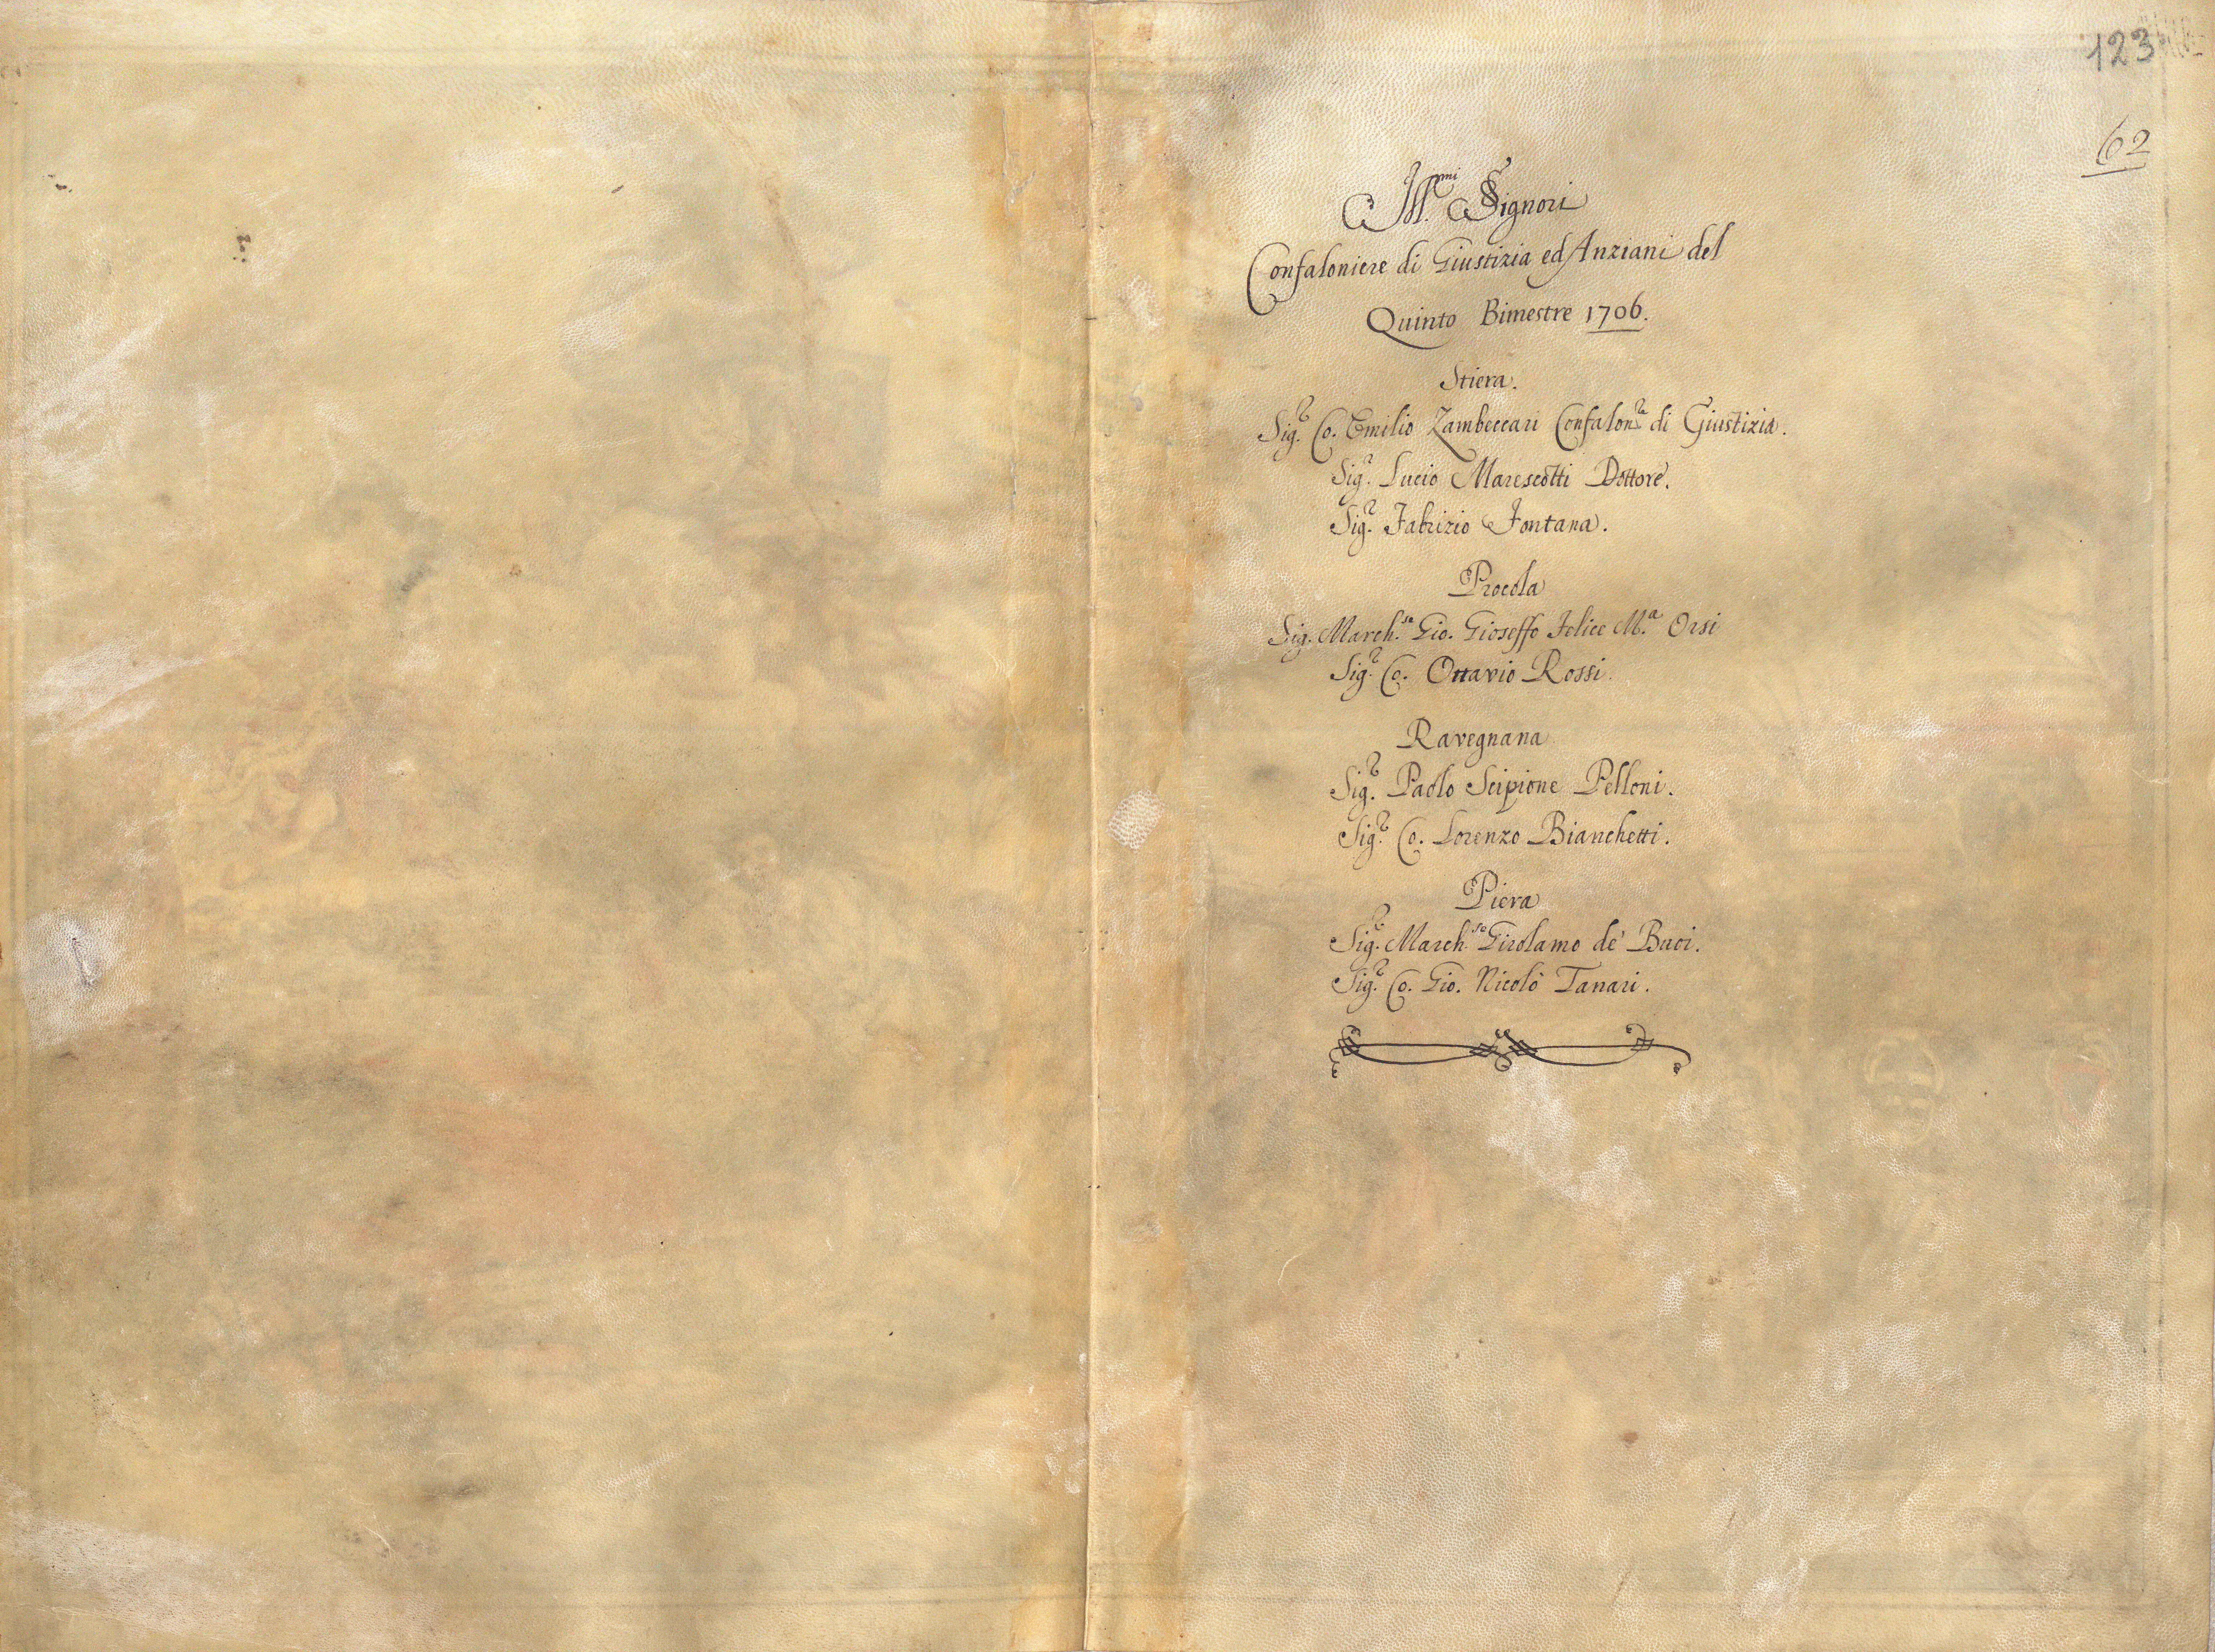 123
62
Ill.mi SSignori
Confaloniere di Giustizia ed Anziani del
Quinto Bimestre 1706.
Stiera.
Sig.r Co. Emilio Zambeccari Confalon.re di Giustizia.
Sig.r Lucio Marescotti Dottore.
Sig.r Fabrizio Fontana.
Procola
Sig. March.se Gio. Gioseffo Felice M.a Orsi
Sig.r Co. Ottavio Rossi.
Ravegnana
Sig.r Paolo Scipione Pelloni.
Sig.r Co. Lorenzo Bianchetti.
Piera
Sig.r March.se Girolamo de' Buoi.
Sig.r Co. Gio. Nicolò Tanari.